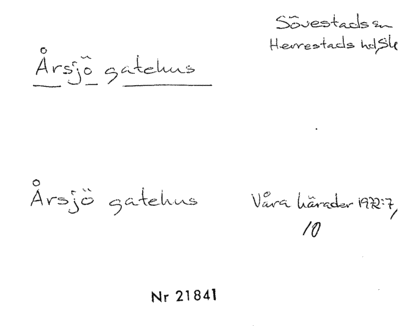 Sövestads sn
Herrestads hd, Sk
Årsjö gatehus
Årsjö gatehus
Våra härader 1972:7,
10
Nr 21841